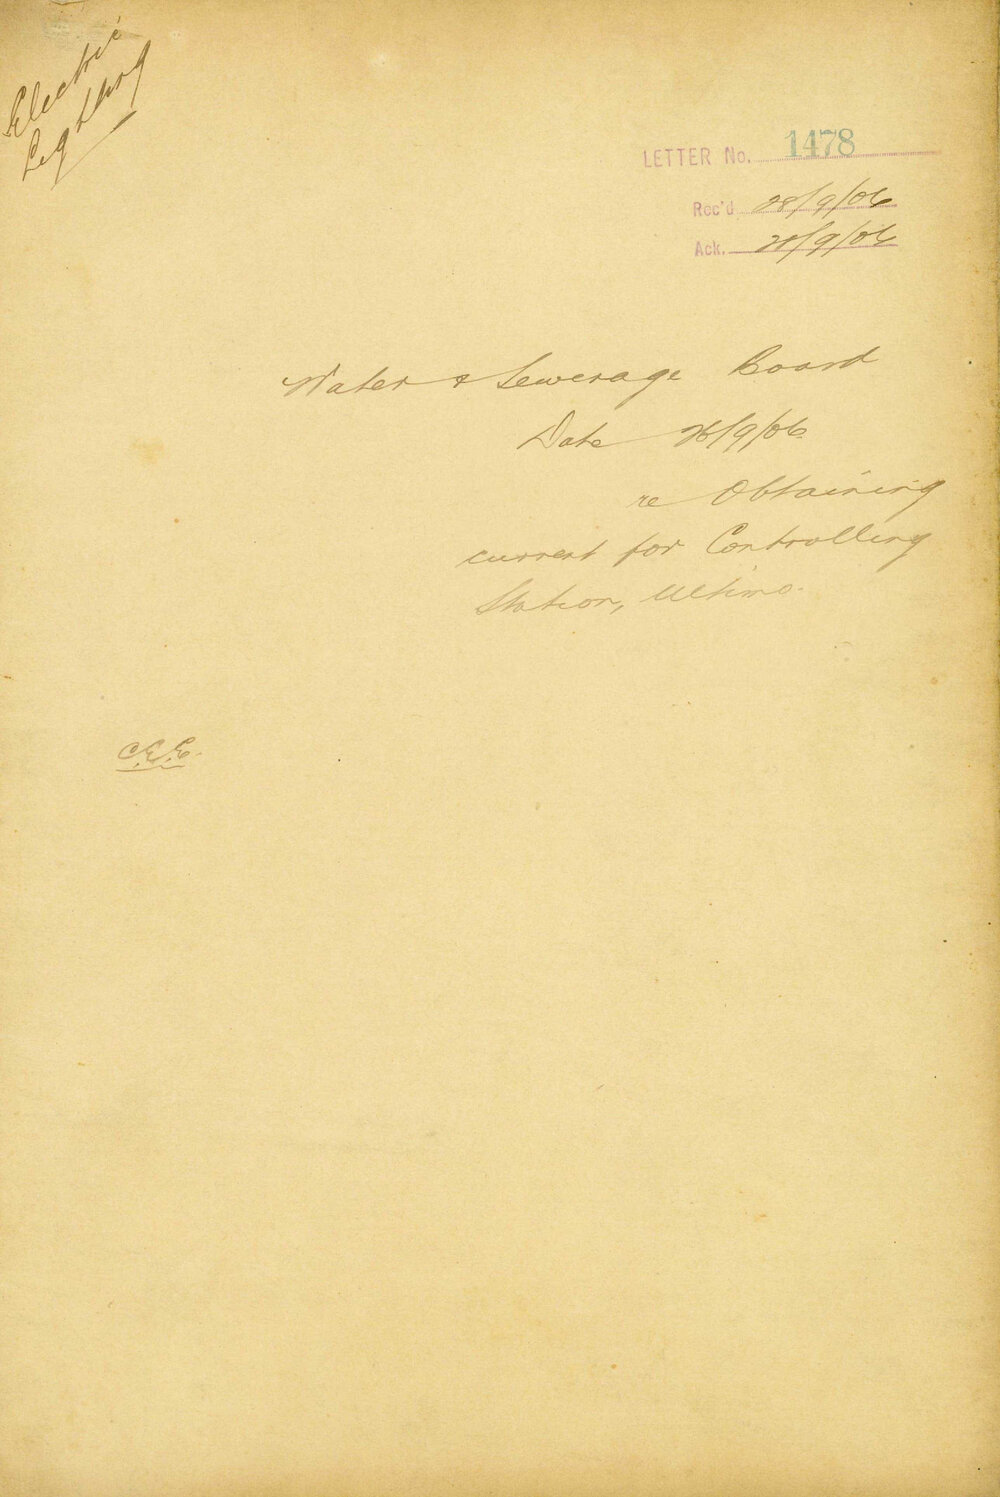 Electric
Lighting
LETTER No. 1478
Rec'd 28/9/06
Ack. 28/9/06
Water & Sewerage Board
Date 26/9/06
re Obtaining
current for Controlling
Station, Ultimo.
C.E.E.